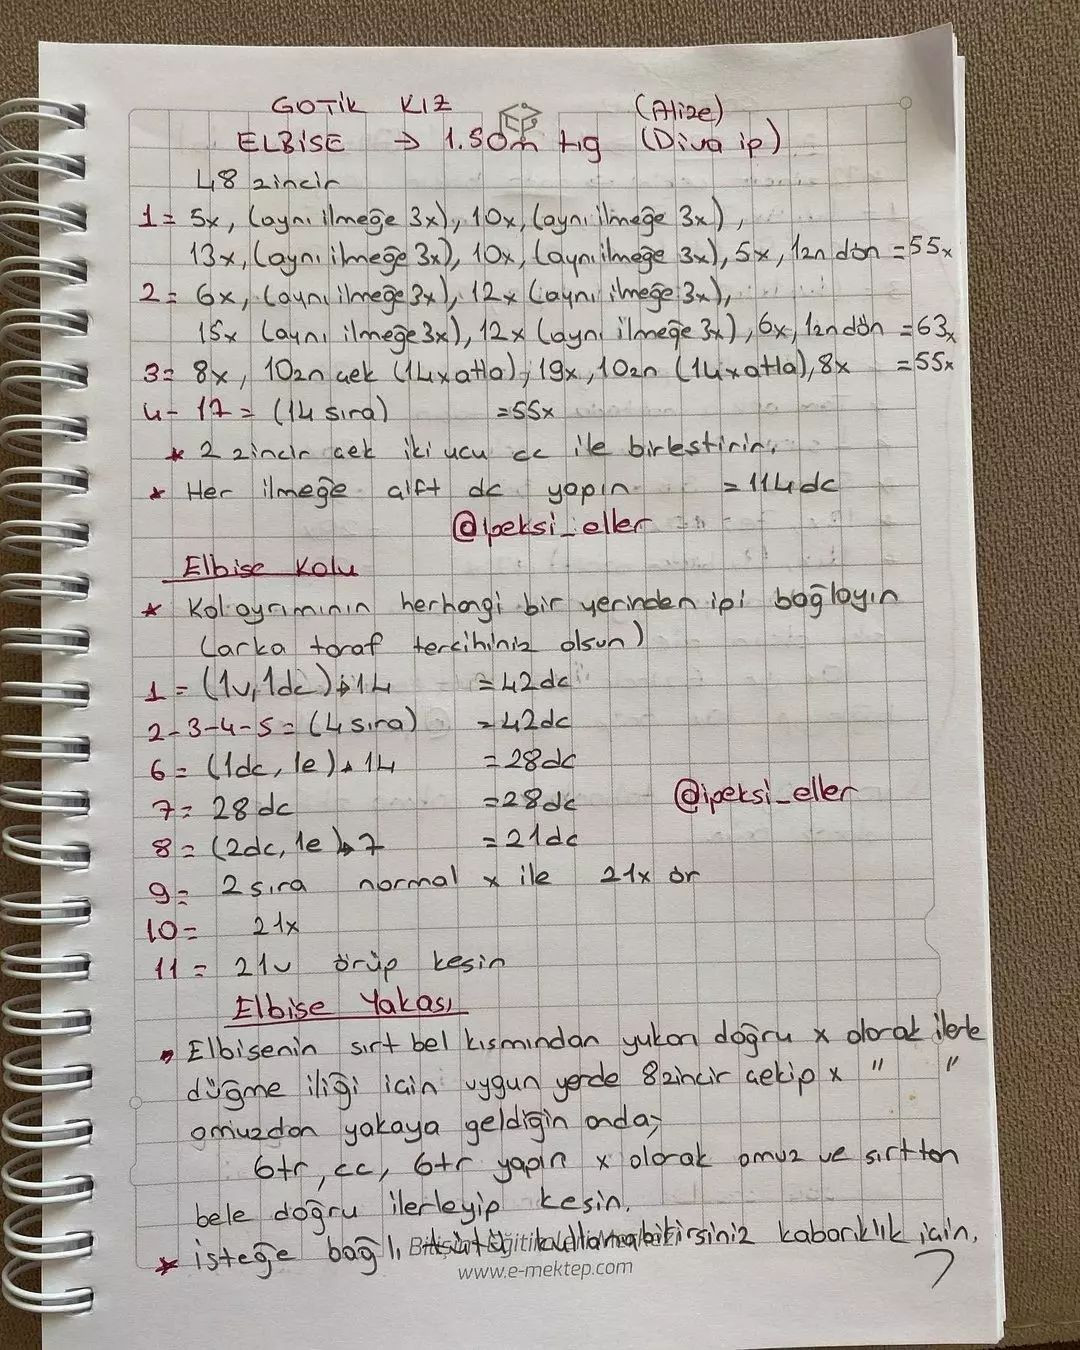 GOTİK KIZ (Alize)
ELBİSE → 1.50m tığ (Diva ip)
48 zincir
1= 5x, (aynı ilmeğe 3x), 10x, (aynı ilmeğe 3x),
13x, (aynı ilmeğe 3x), 10x, (aynı ilmeğe 3x), 5x, 1zn dön =55x
2= 6x, (aynı ilmeğe 3x), 12x (aynı ilmeğe 3x),
15x (aynı ilmeğe 3x), 12x (aynı ilmeğe 3x), 6x, 1zn dön =63x
3= 8x, 10zn çek (14x atla), 19x, 10zn (14x atla), 8x =55x
4- 17= (14 sıra) =55x
* 2 zincir çek iki ucu cc ile birleştirin.
* Her ilmeğe çift dc yapın =114dc
@ipeksi_eller
Elbise Kolu
* Kol ayrımının herhangi bir yerinden ipi bağlayın
(arka taraf tercihiniz olsun)
1 = (1v, 1dc)*14 =42dc
2-3-4-5= (4 sıra) =42dc
6= (1dc, 1e)*14 =28dc
7= 28dc =28dc
@ipeksi_eller
8= (2dc, 1e)*7 =21dc
9= 2 sıra normal x ile 21x ör
10= 21x
11= 21v örüp kesin
Elbise Yakası
* Elbisenin sırt bel kısmından yukarı doğru x olarak ilerle
düğme iliği için uygun yerde 8zincir çekip x " "
omuzdan yakaya geldiğin anda;
6tr, cc, 6tr yapın x olarak omuz ve sırttan
bele doğru ilerleyip kesin.
* isteğe bağlı kabarıklık için.
www.e-mektep.com